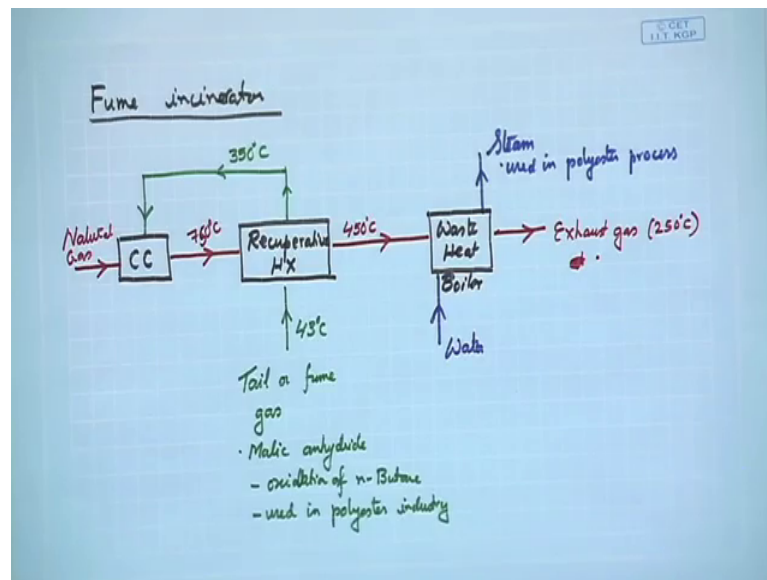 © CET
I.I.T. KGP
Fume incinerator
350°C
Steam
· used in polyester process
Natural
Gas
CC
760°C
Recuperative
HX
450°C
Waste
Heat
Boiler
Exhaust gas (250°C)
43°C
Water
Tail or fume
gas
· Malic anhydride
- oxidation of n-Butane
- used in polyester industry